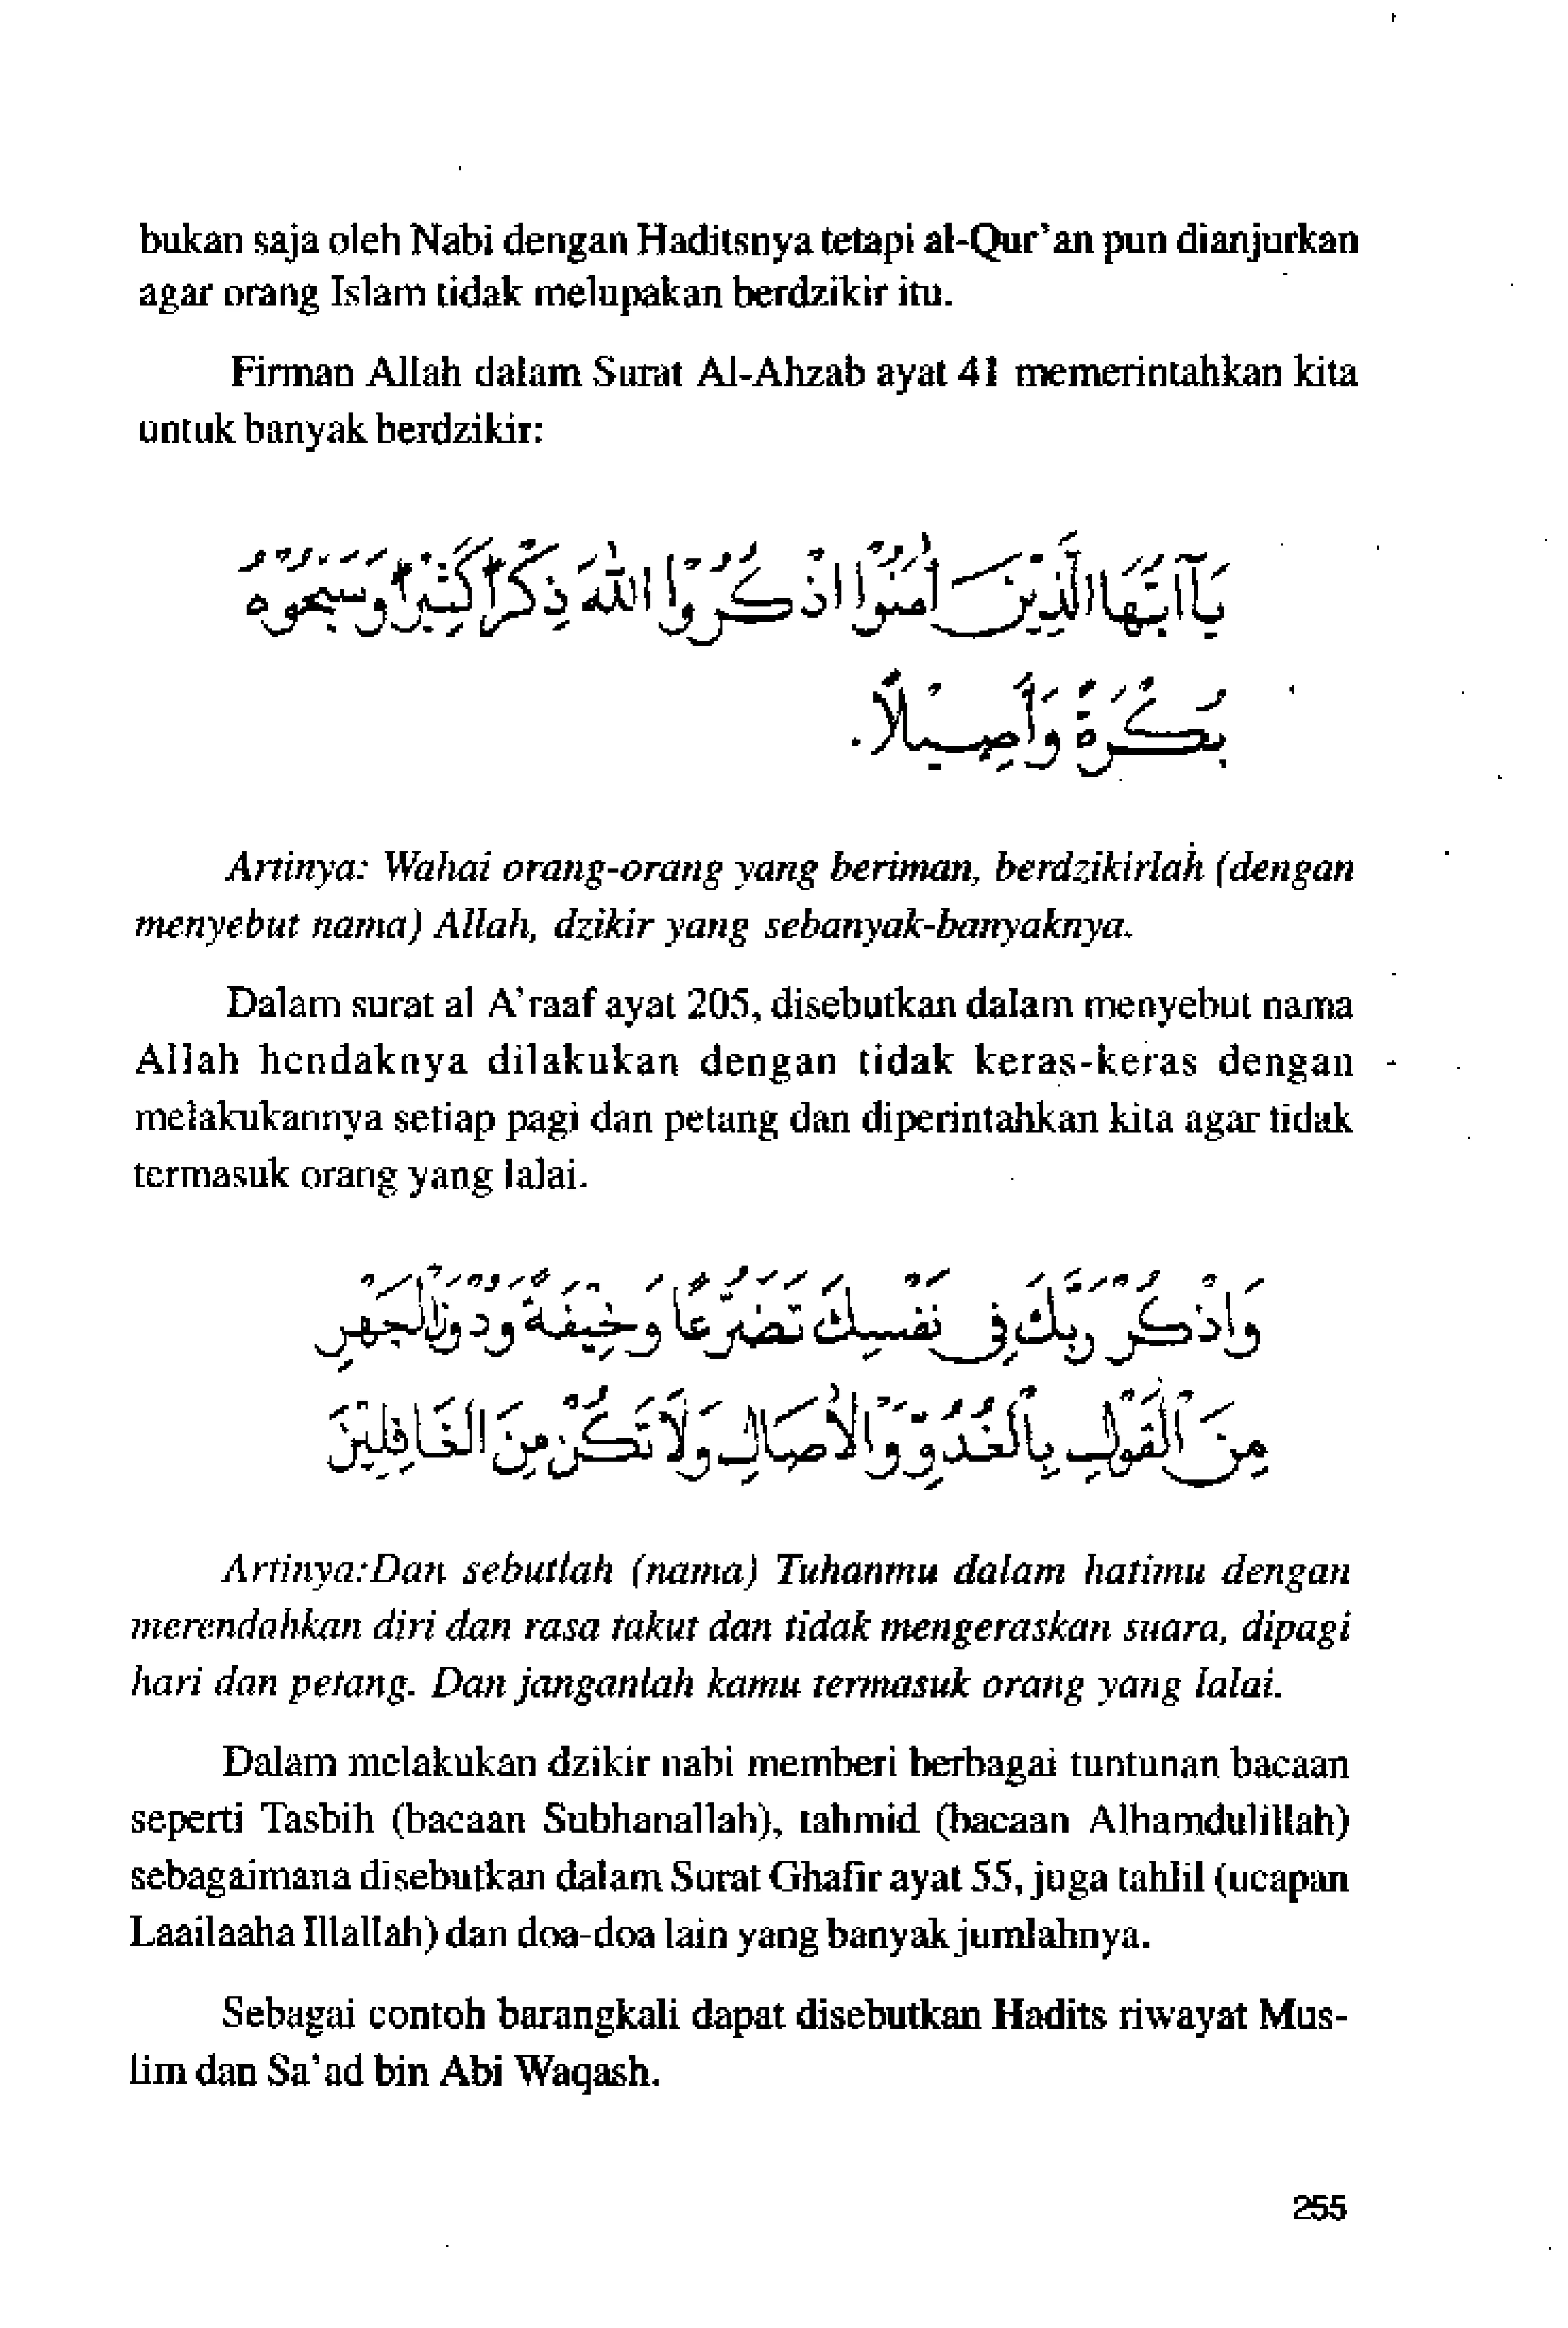 bukan saja oleh Nabi dengan Haditsnya tetapi al-Qur'an pun dianjurkan
agar orang Islam tidak melupakan berdzikir itu.
Firman Allah dalam Surat Al-Ahzab ayat 41 memerintahkan kita
untuk banyak berdzikir:
يَآاَيُّهَا الَّذِيْنَ اٰمَنُوْا اذْكُرُوْا اللّٰهَ ذِكْرًا كَثِيْرًا وَسَبِّحُوْهُ
بُكْرَةً وَاَصِيْلًا.
Artinya: Wahai orang-orang yang beriman, berdzikirlah (dengan
menyebut nama) Allah, dzikir yang sebanyak-banyaknya.
Dalam surat al A'raaf ayat 205, disebutkan dalam menyebut nama
Allah hendaknya dilakukan dengan tidak keras-keras dengan
melakukannya setiap pagi dan petang dan diperintahkan kita agar tidak
termasuk orang yang lalai.
وَاذْكُرْ رَبَّكَ فِى نَفْسِكَ تَضَرُّعًا وَخِيْفَةً وَدُوْنَ الْجَهْرِ
مِنَ الْقَوْلِ بِالْغُدُوِّ وَالْاٰصَالِ وَلَا تَكُنْ مِنَ الْغَافِلِيْنَ
Artinya:Dan sebutlah (nama) Tuhanmu dalam hatimu dengan
merendahkan diri dan rasa takut dan tidak mengeraskan suara, dipagi
hari dan petang. Dan janganlah kamu termasuk orang yang lalai.
Dalam melakukan dzikir nabi memberi berbagai tuntunan bacaan
seperti Tasbih (bacaan Subhanallah), tahmid (bacaan Alhamdulillah)
sebagaimana disebutkan dalam Surat Ghafir ayat 55, juga tahlil (ucapan
Laailaaha Illallah) dan doa-doa lain yang banyak jumlahnya.
Sebagai contoh barangkali dapat disebutkan Hadits riwayat Mus-
lim dan Sa'ad bin Abi Waqash.
255